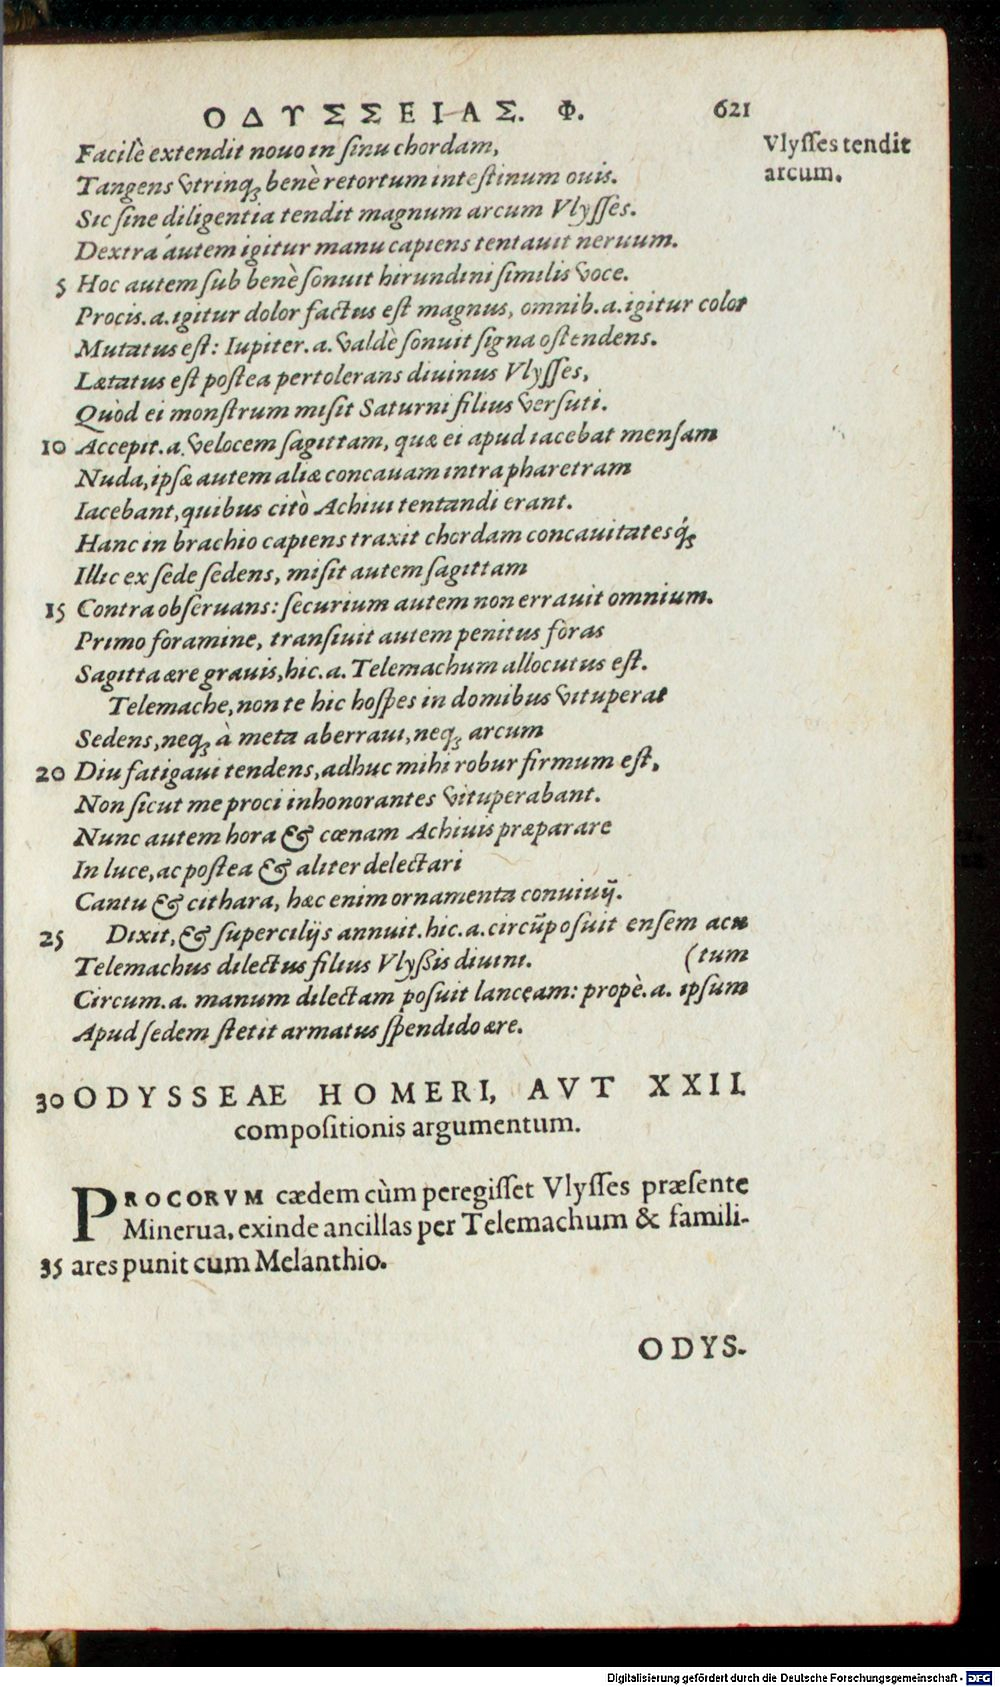 ΟΔΥΣΣΕΙΑΣ. Φ. 621
Vlyſſes tendit
arcum.
Facilè extendit nouo in ſinu chordam,
Tangens vtrinq; benè retortum inteſtinum ouis.
Sic ſine diligentia tendit magnum arcum Vlyſſes.
Dextra autem igitur manu capiens tentauit neruum.
5 Hoc autem ſub benè ſonuit hirundini ſimilis voce.
Procis.a.igitur dolor factus eſt magnus, omnib.a.igitur color
Mutatus eſt: Iupiter.a.valdè ſonuit ſigna oſtendens.
Lætatus eſt poſtea pertolerans diuinus Vlyſſes,
Quòd ei monſtrum miſit Saturni filius verſuti.
10 Accepit.a.velocem ſagittam, quæ ei apud iacebat menſam
Nuda, ipſæ autem aliæ concauam intra pharetram
Iacebant, quibus citò Achiui tentandi erant.
Hanc in brachio capiens traxit chordam concauitatesq́;
Illic ex ſede ſedens, miſit autem ſagittam
15 Contra obſeruans: ſecurium autem non errauit omnium.
Primo foramine, tranſiuit autem penitus foras
Sagitta ære grauis, hic.a.Telemachum allocutus eſt.
Telemache, non te hic hoſpes in domibus vituperat
Sedens, neq; à meta aberraui, neq; arcum
20 Diu fatigaui tendens, adhuc mihi robur firmum eſt,
Non ſicut me proci inhonorantes vituperabant.
Nunc autem hora & cœnam Achiuis præparare
In luce, ac poſtea & aliter delectari
Cantu & cithara, hæc enim ornamenta conuiuij.
25 Dixit, & ſupercilijs annuit.hic.a.circũpoſuit enſem acu
Telemachus dilectus filius Vlyßis diuini. (tum
Circum.a. manum dilectam poſuit lanceam: propè.a. ipſum
Apud ſedem ſtetit armatus ſpendido ære.
30 ODYSSEAE HOMERI, AVT XXII.
compoſitionis argumentum.
PROCORVM cædem cùm peregiſſet Vlyſſes præſente
Minerua, exinde ancillas per Telemachum & famili-
35 ares punit cum Melanthio.
ODYS-
Digitalisierung gefördert durch die Deutsche Forschungsgemeinschaft - DFG